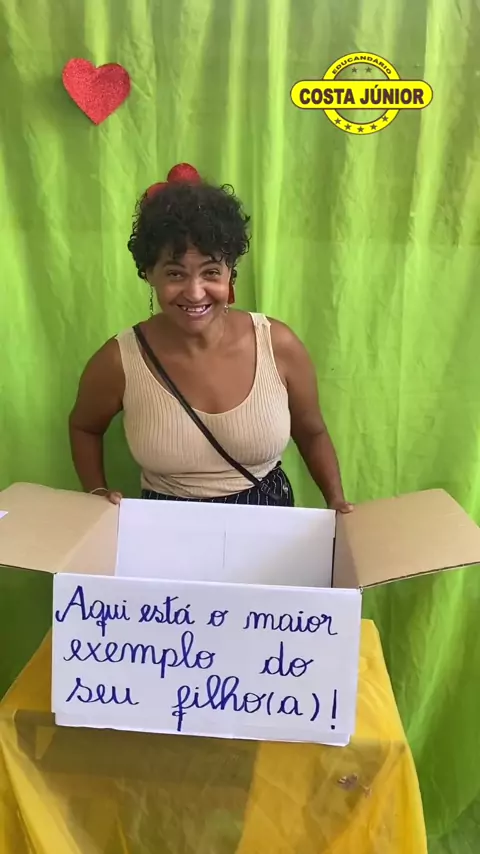 EDUCANDÁRIO
COSTA JÚNIOR
Aqui está o maior
exemplo do
seu filho(a)!